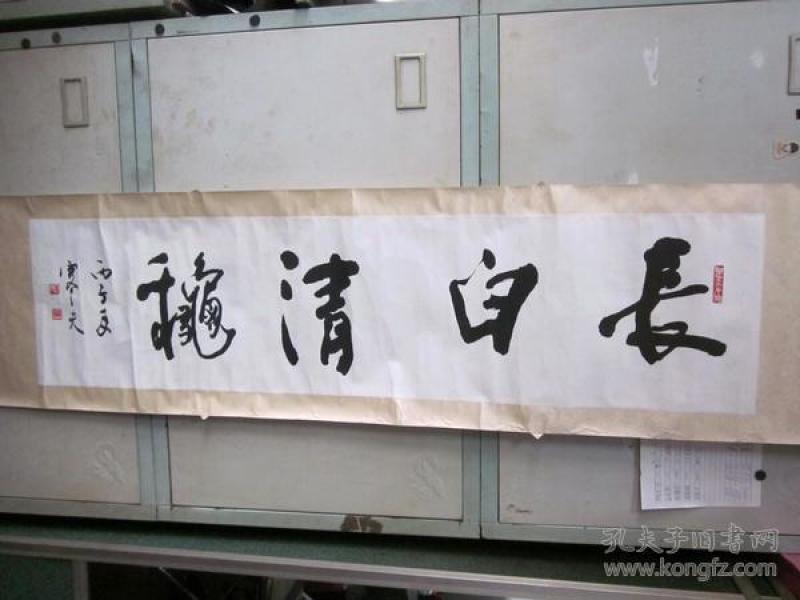 長白清龝
丙子夏
孔夫子旧书网
www.kongfz.com